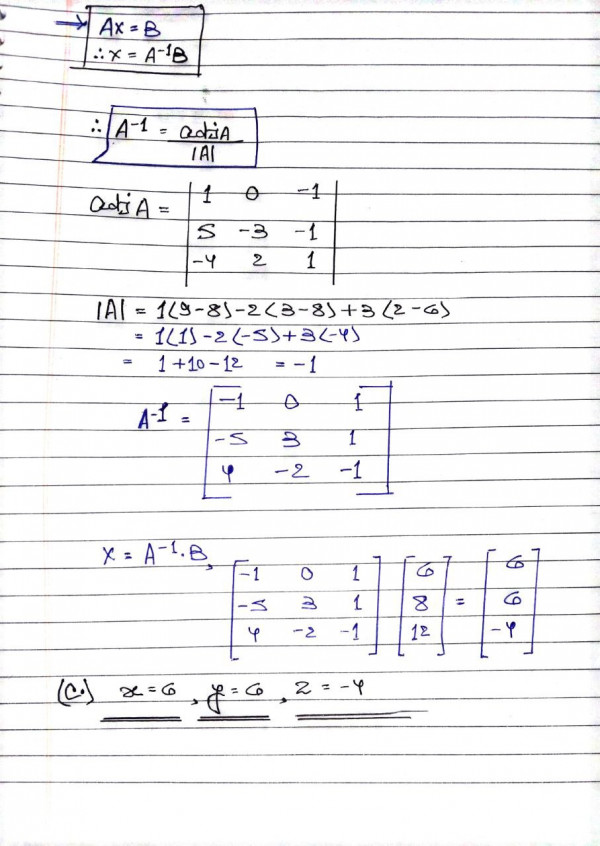 → Ax = B
∴ x = A⁻¹B
∴ A⁻¹ = adjA / |A|
adj A = | 1 0 -1 |
| 5 -3 -1 |
| -4 2 1 |
|A| = 1(9-8)-2(3-8)+3(2-6)
= 1(1)-2(-5)+3(-4)
= 1+10-12 = -1
A⁻¹ = [ -1 0 1 ]
[ -5 3 1 ]
[ 4 -2 -1 ]
X = A⁻¹.B, [ -1 0 1 ] [ 6 ] [ 6 ]
[ -5 3 1 ] [ 8 ] = [ 6 ]
[ 4 -2 -1 ] [ 12 ] [ -4 ]
(C.) x=6, y=6, z=-4